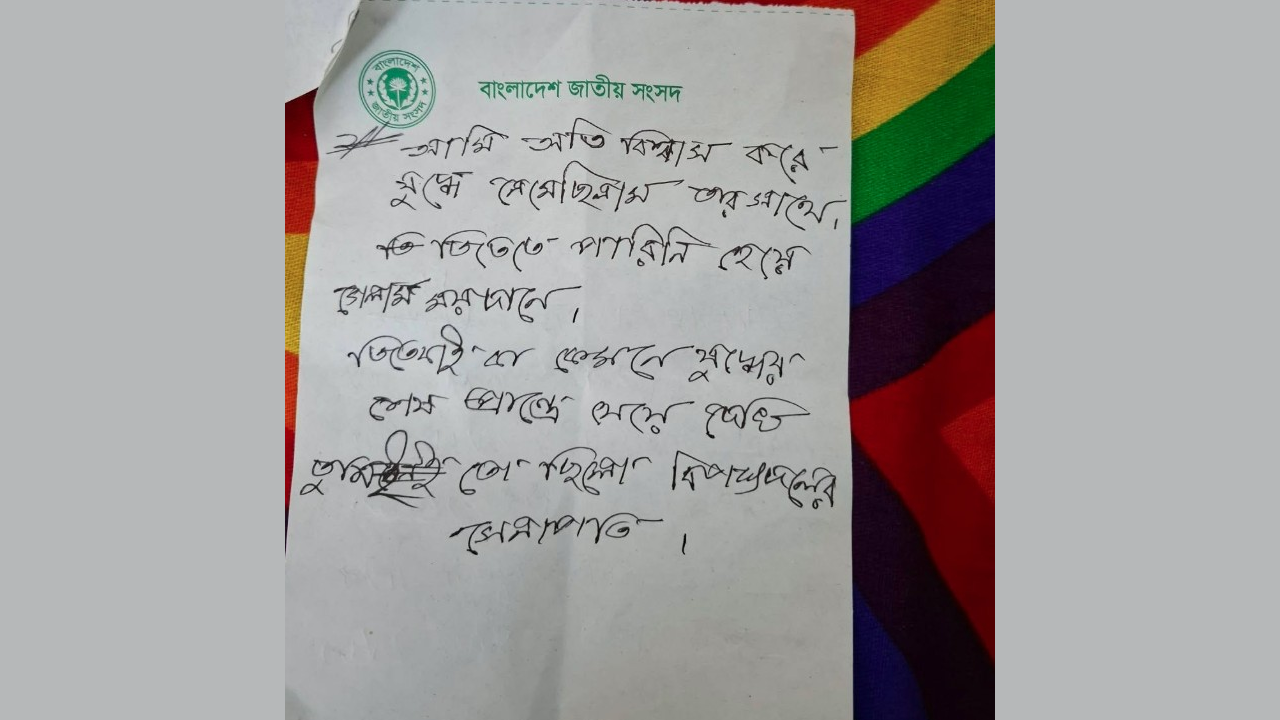 বাংলাদেশ
জাতীয় সংসদ
বাংলাদেশ জাতীয় সংসদ
আমি অতি বিশ্বাস করে
যুদ্ধে নেমেছিলাম তার সাথে।
জিততে পারিনি হেরে
গেলাম ময়দানে।
জিতেযাই বা কেমনে যুদ্ধের
শেষ প্রান্তে যেয়ে দেখি
তুমিই তো ছিলে বিপক্ষদলের
সেনাপতি ।